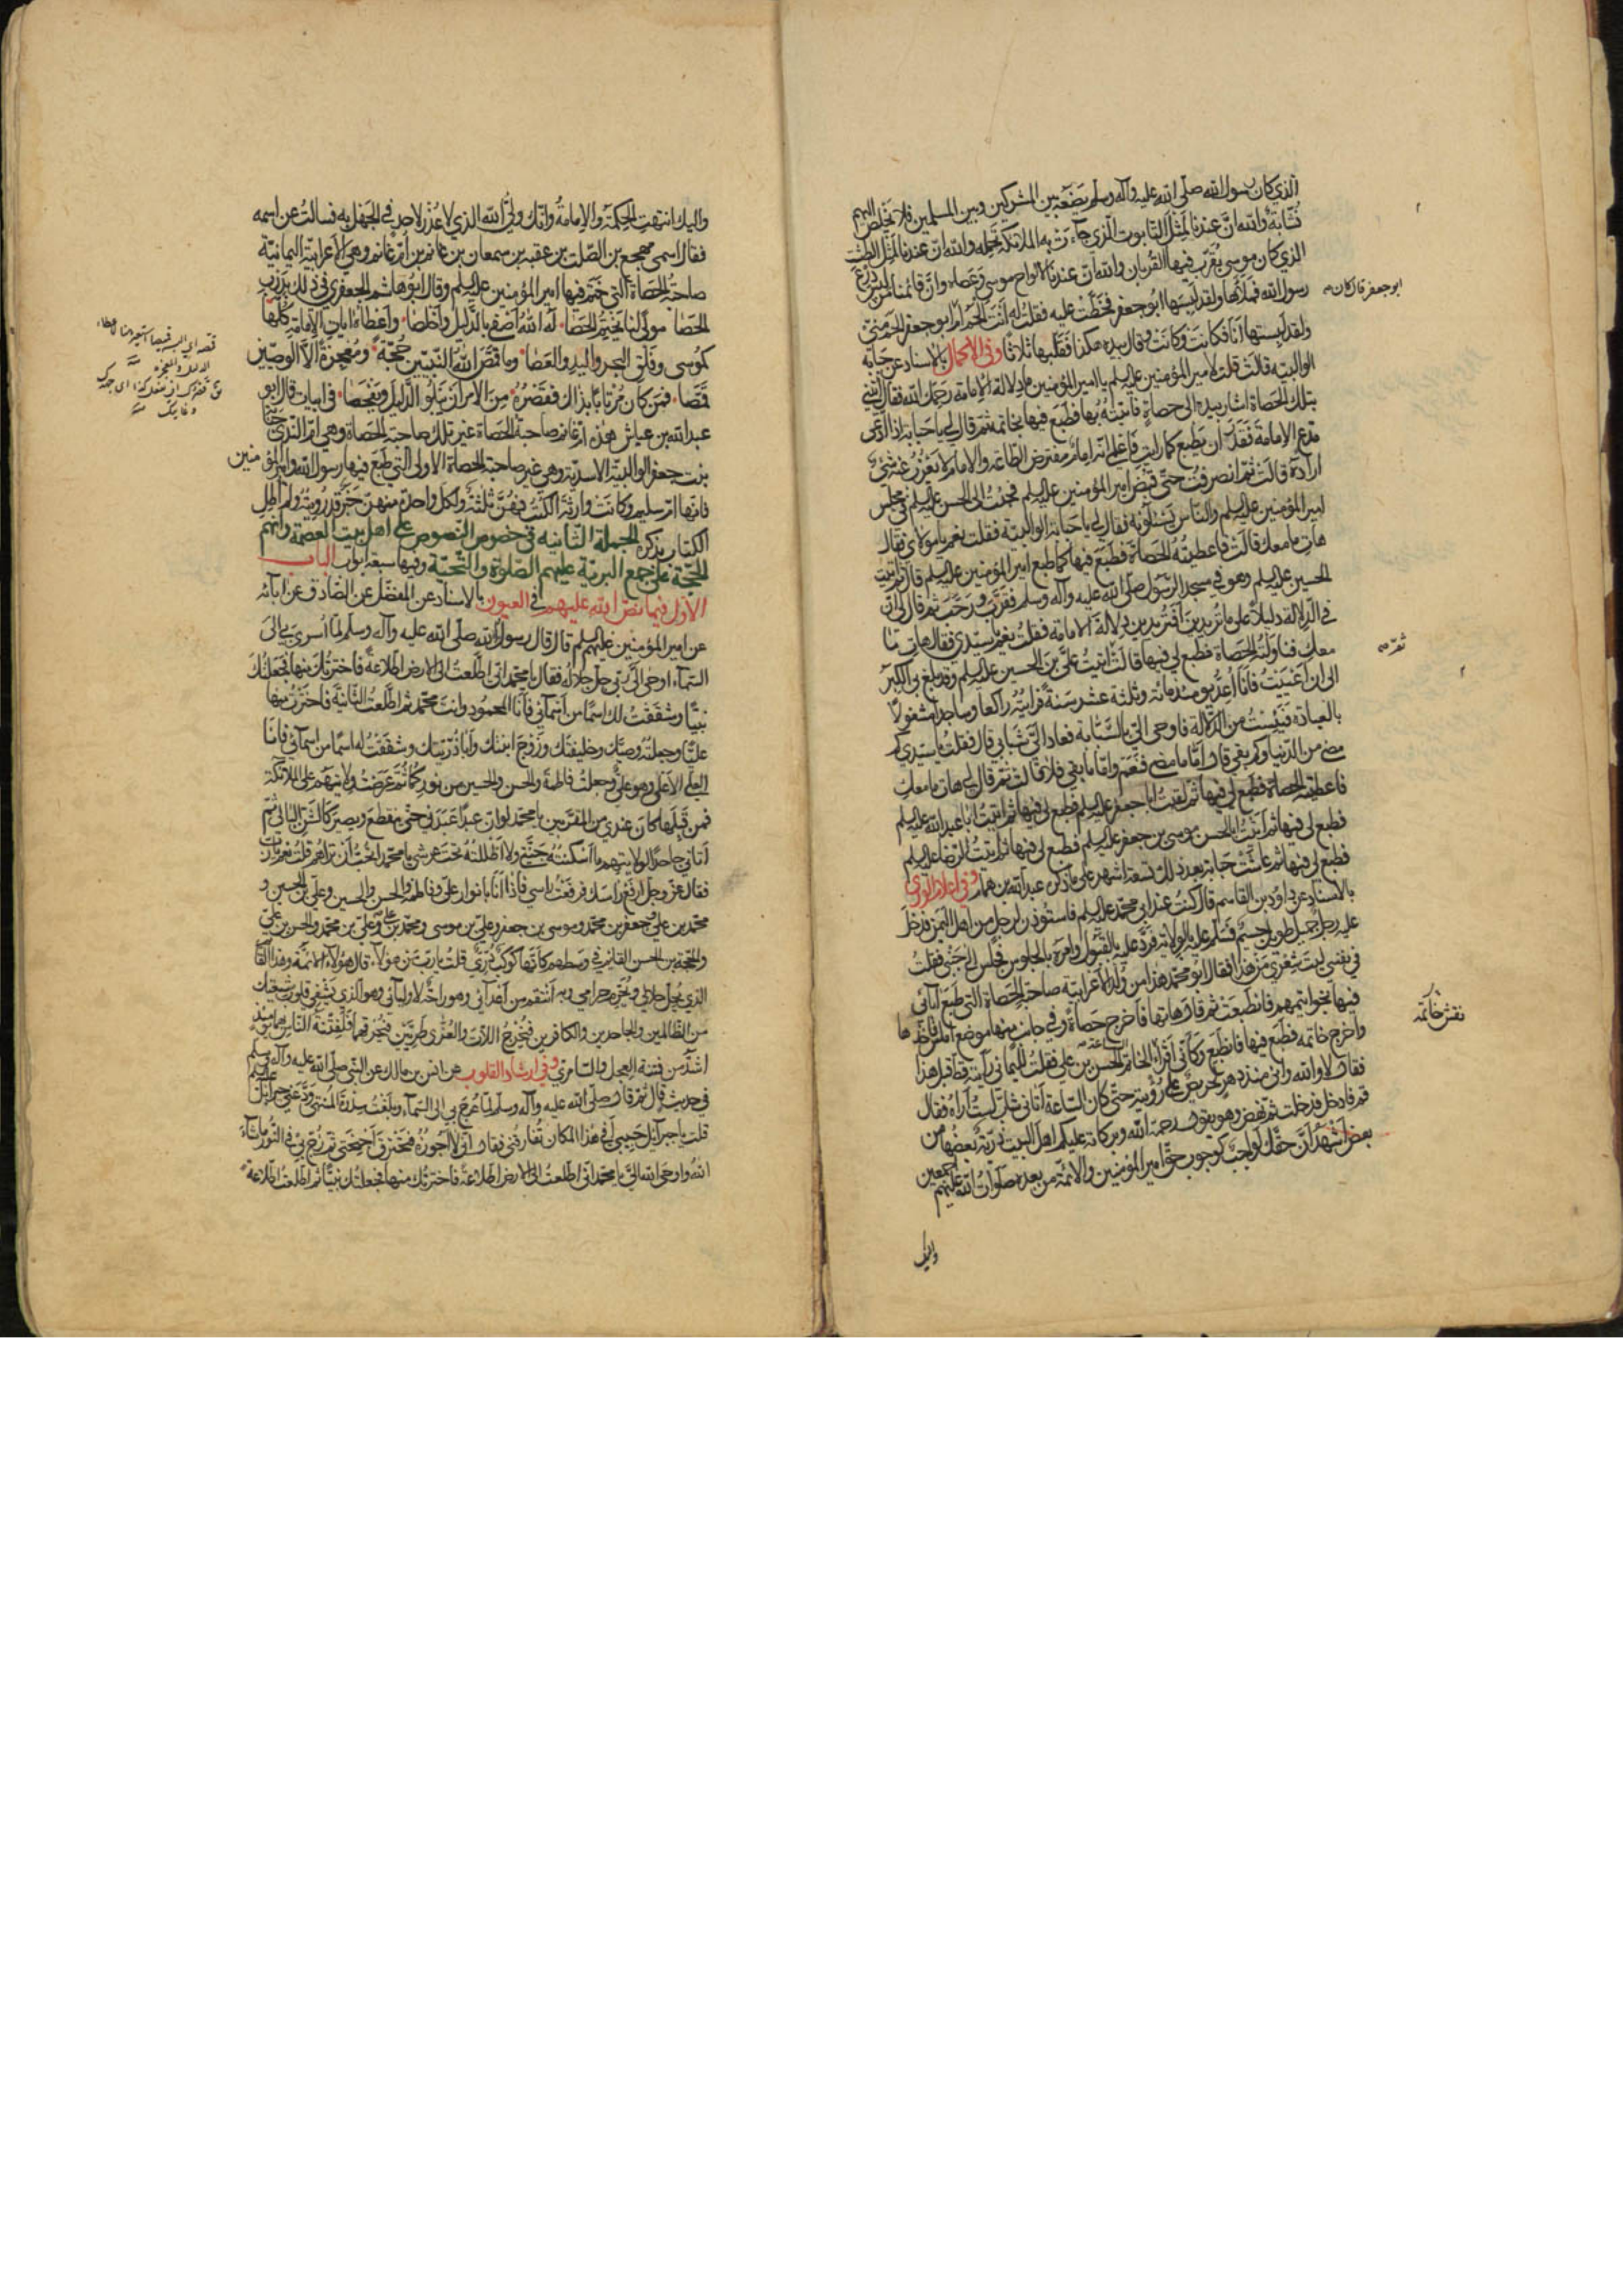 الذي كان رسول الله صلى الله عليه وآله وسلم يضعه بين المشركين وبين المسلمين فلا يخلص اليهم
نشابة والله ان عندنا لمثل التابوت الذي جاءت به الملائكة تحمله والله ان عندنا لمثل الطشت
الذي كان موسى يقرب فيها القربان والله ان عندنا لالواح موسى وعصاه وان قائمنا لمن لبس درع
رسول الله فملأها ولقد لبسها ابو جعفر فخطت عليه فقلت له انت الحم ام ابو جعفر الحم مني
ابو جعفر قال كان
ولقد لبستها انا فكانت وكانت وقال بيده هكذا فقلبها ثلاثا وفي الاكمال بالاسناد عن حبابه
الوالبيه قالت قلت لامير المؤمنين عليه السلم يا امير المؤمنين ما دلالة الامامة رحمك الله فقال ائتيني
بتلك الحصاة اشار بيده الى حصاة فاتيته بها فطبع فيها بخاتمه ثم قال لي يا حبابة اذا ادعى
مدع الامامة فقدر ان يطبع كما رايت فاعلمي انه امام مفترض الطاعة والامام لا يعزب عنه شيء
اراده قالت ثم انصرفت حتى قبض امير المؤمنين عليه السلم فجئت الى الحسن عليه السلم في مجلس
امير المؤمنين عليه السلم والناس يسئلونه فقال لي يا حبابة الوالبية فقلت نعم يا مولاي فقال
هات ما معك قالت فاعطيته الحصاة فطبع فيها كما طبع امير المؤمنين عليه السلم قالت ثم اتيت
الحسين عليه السلم وهو في مسجد الرسول صلى الله عليه وآله وسلم فقرب ورحب ثم قال لي ان
في الدلالة دليلا على ما تريدين افتريدين دلالة الامامة فقلت نعم يا سيدي فقال هات ما
معك فناولته الحصاة فطبع لي فيها قالت اتيت علي بن الحسين عليه السلم وقد بلغ بي الكبر
ثم
الى ان اعييت فانا اعد يومئذ مائة وثلثة عشر سنة فرايته راكعا وساجدا مشغولا
بالعبادة فيئست من الدلالة فاوحى الي بالسبابة فعاد الي شبابي قال فقلت يا سيدي كم
مضى من الدنيا وكم بقي قال اما ما مضى فنعم واما ما بقي فلا قالت ثم قال لي هات ما معك
فاعطيته الحصاة فطبع لي فيها ثم لقيت ابا جعفر عليه السلم فطبع لي فيها ثم اتيت ابا عبد الله عليه السلم
فطبع لي فيها ثم اتيت ابا الحسن موسى بن جعفر عليه السلم فطبع لي فيها ثم اتيت الرضا عليه السلم
فطبع لي فيها ثم عاشت حبابة بعد ذلك تسعة اشهر على ما ذكره عبد الله بن همام وفي اعلام الورى
بالاسناد عن داود بن القاسم قال كنت عند ابي محمد عليه السلم فاستوذن لرجل من اهل اليمن فدخل
عليه رجل جميل طويل جسيم فسلم عليه بالولاية فرد عليه بالقبول وامره بالجلوس فجلس الى جنبي فقلت
في نفسي ليت شعري من هذا فقال ابو محمد هذا من ولد الاعرابية صاحبة الحصاة التي طبع آبائي
فيها بخواتيمهم فانطبعت ثم قال هاتها فاخرج حصاة وفي جانب منها موضع املس فاخذها
واخرج خاتمه فطبع فيها فانطبع وكأني اقرأ الخاتم الساعة الحسن بن علي فقلت لليماني رأيته قط قبل هذا
نقش خاتمه
فقال لا والله واني منذ دهر لحريص على رؤيته حتى كان الساعة اتاني شاب لست اراه فقال
قم فادخل فدخلت ثم نهض وهو يقول رحمة الله وبركاته عليكم اهل البيت ذرية بعضها من
بعض اشهد ان حقك لواجب كوجوب حق امير المؤمنين والائمة من بعده صلوات الله عليهم اجمعين
واليك
واليك انتهت الحكمة والامامة وانك ولي الله الذي لا عذر لاحد في الجهل به فسالت عن اسمه
فقال اسمي مهجع بن الصلت بن عقبه بن سمعان بن غانم بن ام غانم وهي الاعرابية اليمانية
صاحبة الحصاة التي ختم فيها امير المؤمنين عليه السلم وقال ابو هاشم الجعفري في ذلك بدرب
الحصا مولى لنا يختم الحصا له الله اصفى بالدليل واخلصا واعطاه ايات الامامة كلها
كموسى وفلق البحر واليد والعصا وما قمص الله النبيين حجة ومعجزة الا الوصيين
قمصا فمن كان مرتابا بذاك فقصره من الامر ان يتلو الدليل ويفحصا في ابيات قال ابو
عبد الله بن عياش هذه ام غانم صاحبة الحصاة غير تلك صاحبة الحصاة وهي ام الندى حبابة
بنت جعفر الوالبية الاسدية وهي غير صاحبة الحصاة الاولى التي طبع فيها رسول الله وامير المؤمنين
فانها ام سليم وكانت وارثة الكتب فهن ثلثة ولكل واحدة منهن خبر قد رويته ولم اطل
الكتاب بذكره الجملة الثانيه في خصوص النصوص على اهل بيت العصمة وانهم
الحجة على جميع البرية عليهم الصلوة والتحية وفيها سبعة ابواب الباب
الاول فيما نص الله عليهم في العيون بالاسناد عن المفضل عن الصادق عن آبائه
عن امير المؤمنين عليهم السلم قال قال رسول الله صلى الله عليه وآله وسلم لما اسري بي الى
السماء اوحى الي ربي جل جلاله فقال يا محمد اني اطلعت الى الارض اطلاعة فاخترتك منها فجعلتك
نبيا وشققت لك اسما من اسمائي فانا المحمود وانت محمد ثم اطلعت الثانية فاخترت منها
عليا وجعلته وصيك وخليفتك وزوج ابنتك وابا ذريتك وشققت له اسما من اسمائي فانا
العلي الاعلى وهو علي وجعلت فاطمة والحسن والحسين من نوركما ثم عرضت ولايتهم على الملائكة
فمن قبلها كان عندي من المقربين يا محمد لو ان عبدا عبدني حتى ينقطع ويصير كالشن البالي ثم
اتاني جاحدا لولايتهم ما اسكنته جنتي ولا اظللته تحت عرشي يا محمد اتحب ان تراهم قلت نعم يا رب
فقال عز وجل ارفع راسك فرفعت راسي فاذا انا بانوار علي وفاطمة والحسن والحسين وعلي بن الحسين و
محمد بن علي وجعفر بن محمد وموسى بن جعفر وعلي بن موسى ومحمد بن علي وعلي بن محمد والحسن بن علي
والحجة بن الحسن القائم في وسطهم كانها كوكب دري قلت يا رب من هؤلاء قال هؤلاء الائمة وهذا القائم
الذي يحل حلالي ويحرم حرامي وبه انتقم من اعدائي وهو راحة لاوليائي وهو الذي يشفي قلوب شيعتك
من الظالمين والجاحدين والكافرين فيخرج اللات والعزى طريين فيحرقهما فلفتنة الناس بهما يومئذ
اشد من فتنة العجل والسامري وفي ارشاد القلوب عن انس بن مالك عن النبي صلى الله عليه وآله وسلم
في حديث قال ثم قال صلى الله عليه وآله وسلم لما عرج بي الى السماء وبلغت سدرة المنتهى ودعني جبرائيل عليه السلم
قلت يا جبرائيل حبيبي في هذا المكان تفارقني فقال اني لا اجوزه فتحترق اجنحتي ثم زج بي في النور ما شاء
الله واوحى الله الي يا محمد اني اطلعت الى الارض اطلاعة فاخترتك منها فجعلتك نبيا ثم اطلعت اطلاعة